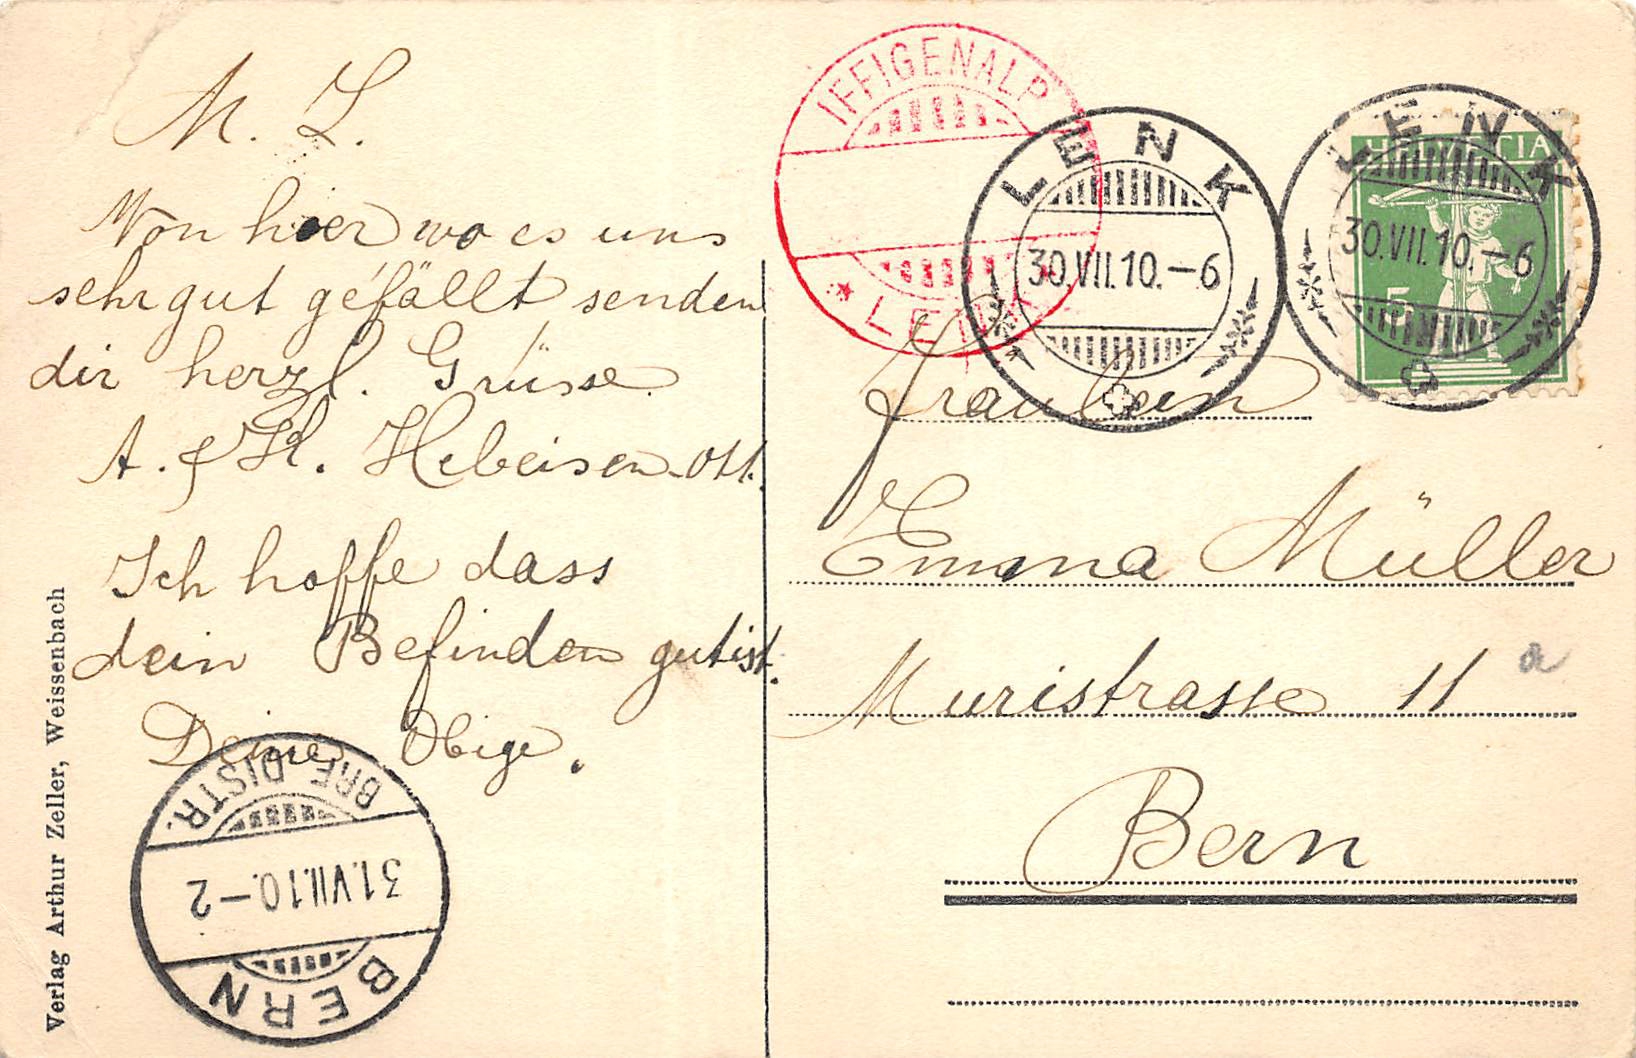 M. L.
Von hier wo es uns
sehr gut gefällt senden
dir herzl. Grüsse
A. & H. Hebeisen-Ott.
Ich hoffe dass
dein Befinden gut ist.
Deine Obige.
Verlag Arthur Zeller, Weissenbach
BERN
31.VII.10.–2
BRF. DISTR.
IFFIGENALP
LENK
LENK
30.VII.10.–6
LENK
30.VII.10.–6
HELVETIA
5
Fräulein
Emma Müller
Muristrasse 11 a
Bern